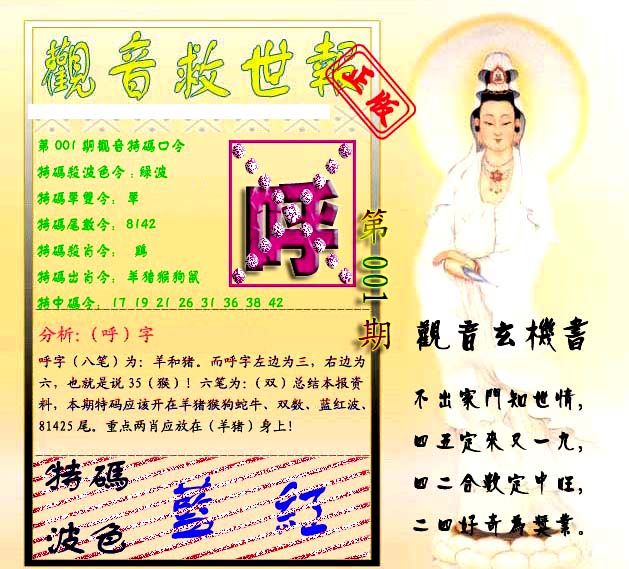 觀音救世報
正版
第001期觀音特碼口令
特碼殺波色令:綠波
特碼單雙令: 單
特碼尾數令: 8142
特碼殺肖令: 鷄
特碼出肖令: 羊猪猴狗鼠
特中碼令: 17 19 21 26 31 36 38 42
呼
第001期
分析:(呼)字
呼字(八笔)为:羊和猪。而呼字左边为三,右边为
六,也就是说35(猴)!六笔为:(双)总结本报资
料,本期特码应该开在羊猪猴狗蛇牛、双数、蓝红波、
81425尾。重点两肖应放在(羊猪)身上!
特碼
波色
藍 红
觀音玄機書
不出家門知世情,
四五定來又一九,
四二合數定中旺,
二四好奇為獎業。